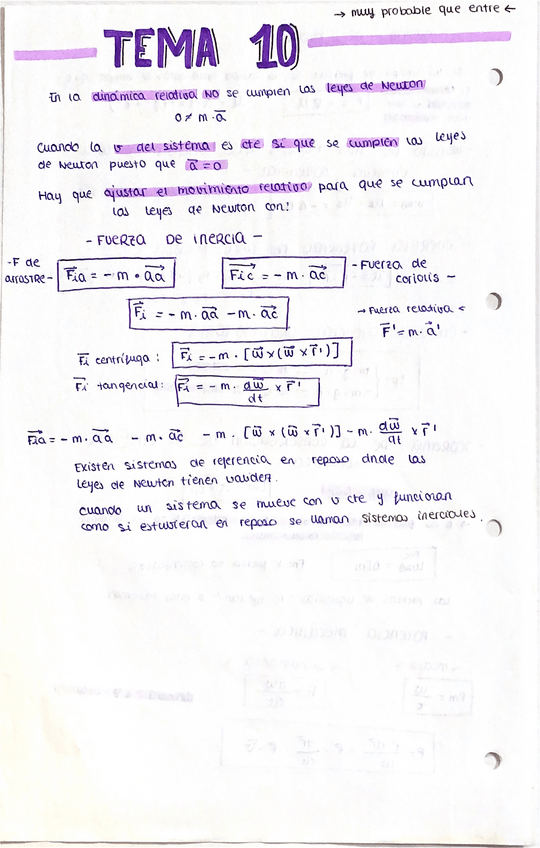 → muy probable que entre ←
TEMA 10
En la dinámica relativa NO se cumplen las leyes de Newton
0 ≠ m·a⃗
Cuando la v del sistema es cte sí que se cumplen las leyes
de Newton puesto que a⃗ = 0
Hay que ajustar el movimiento relativo para que se cumplan
las leyes de Newton con:
- FUERZA DE INERCIA -
- F de arrastre - F⃗ia = - m · a⃗a⃗ F⃗ic = - m · a⃗c⃗ - Fuerza de coriolis -
F⃗i = - m · a⃗a⃗ - m · a⃗c⃗ → Fuerza relativa ←
F⃗' = m · a⃗'
F⃗i centrífuga : F⃗i = - m · [w⃗ x (w⃗ x r⃗')]
F⃗i tangencial: F⃗i = - m · dw⃗/dt x r⃗'
F⃗ia = - m · a⃗a⃗ - m · a⃗c⃗ - m · [w⃗ x (w⃗ x r⃗')] - m · dw⃗/dt x r⃗'
Existen sistemas de referencia en reposo dnde las
leyes de Newton tienen validez.
Cuando un sistema se mueve con v cte y funcionan
como si estuvieran en reposo se llaman sistemas inerciales.